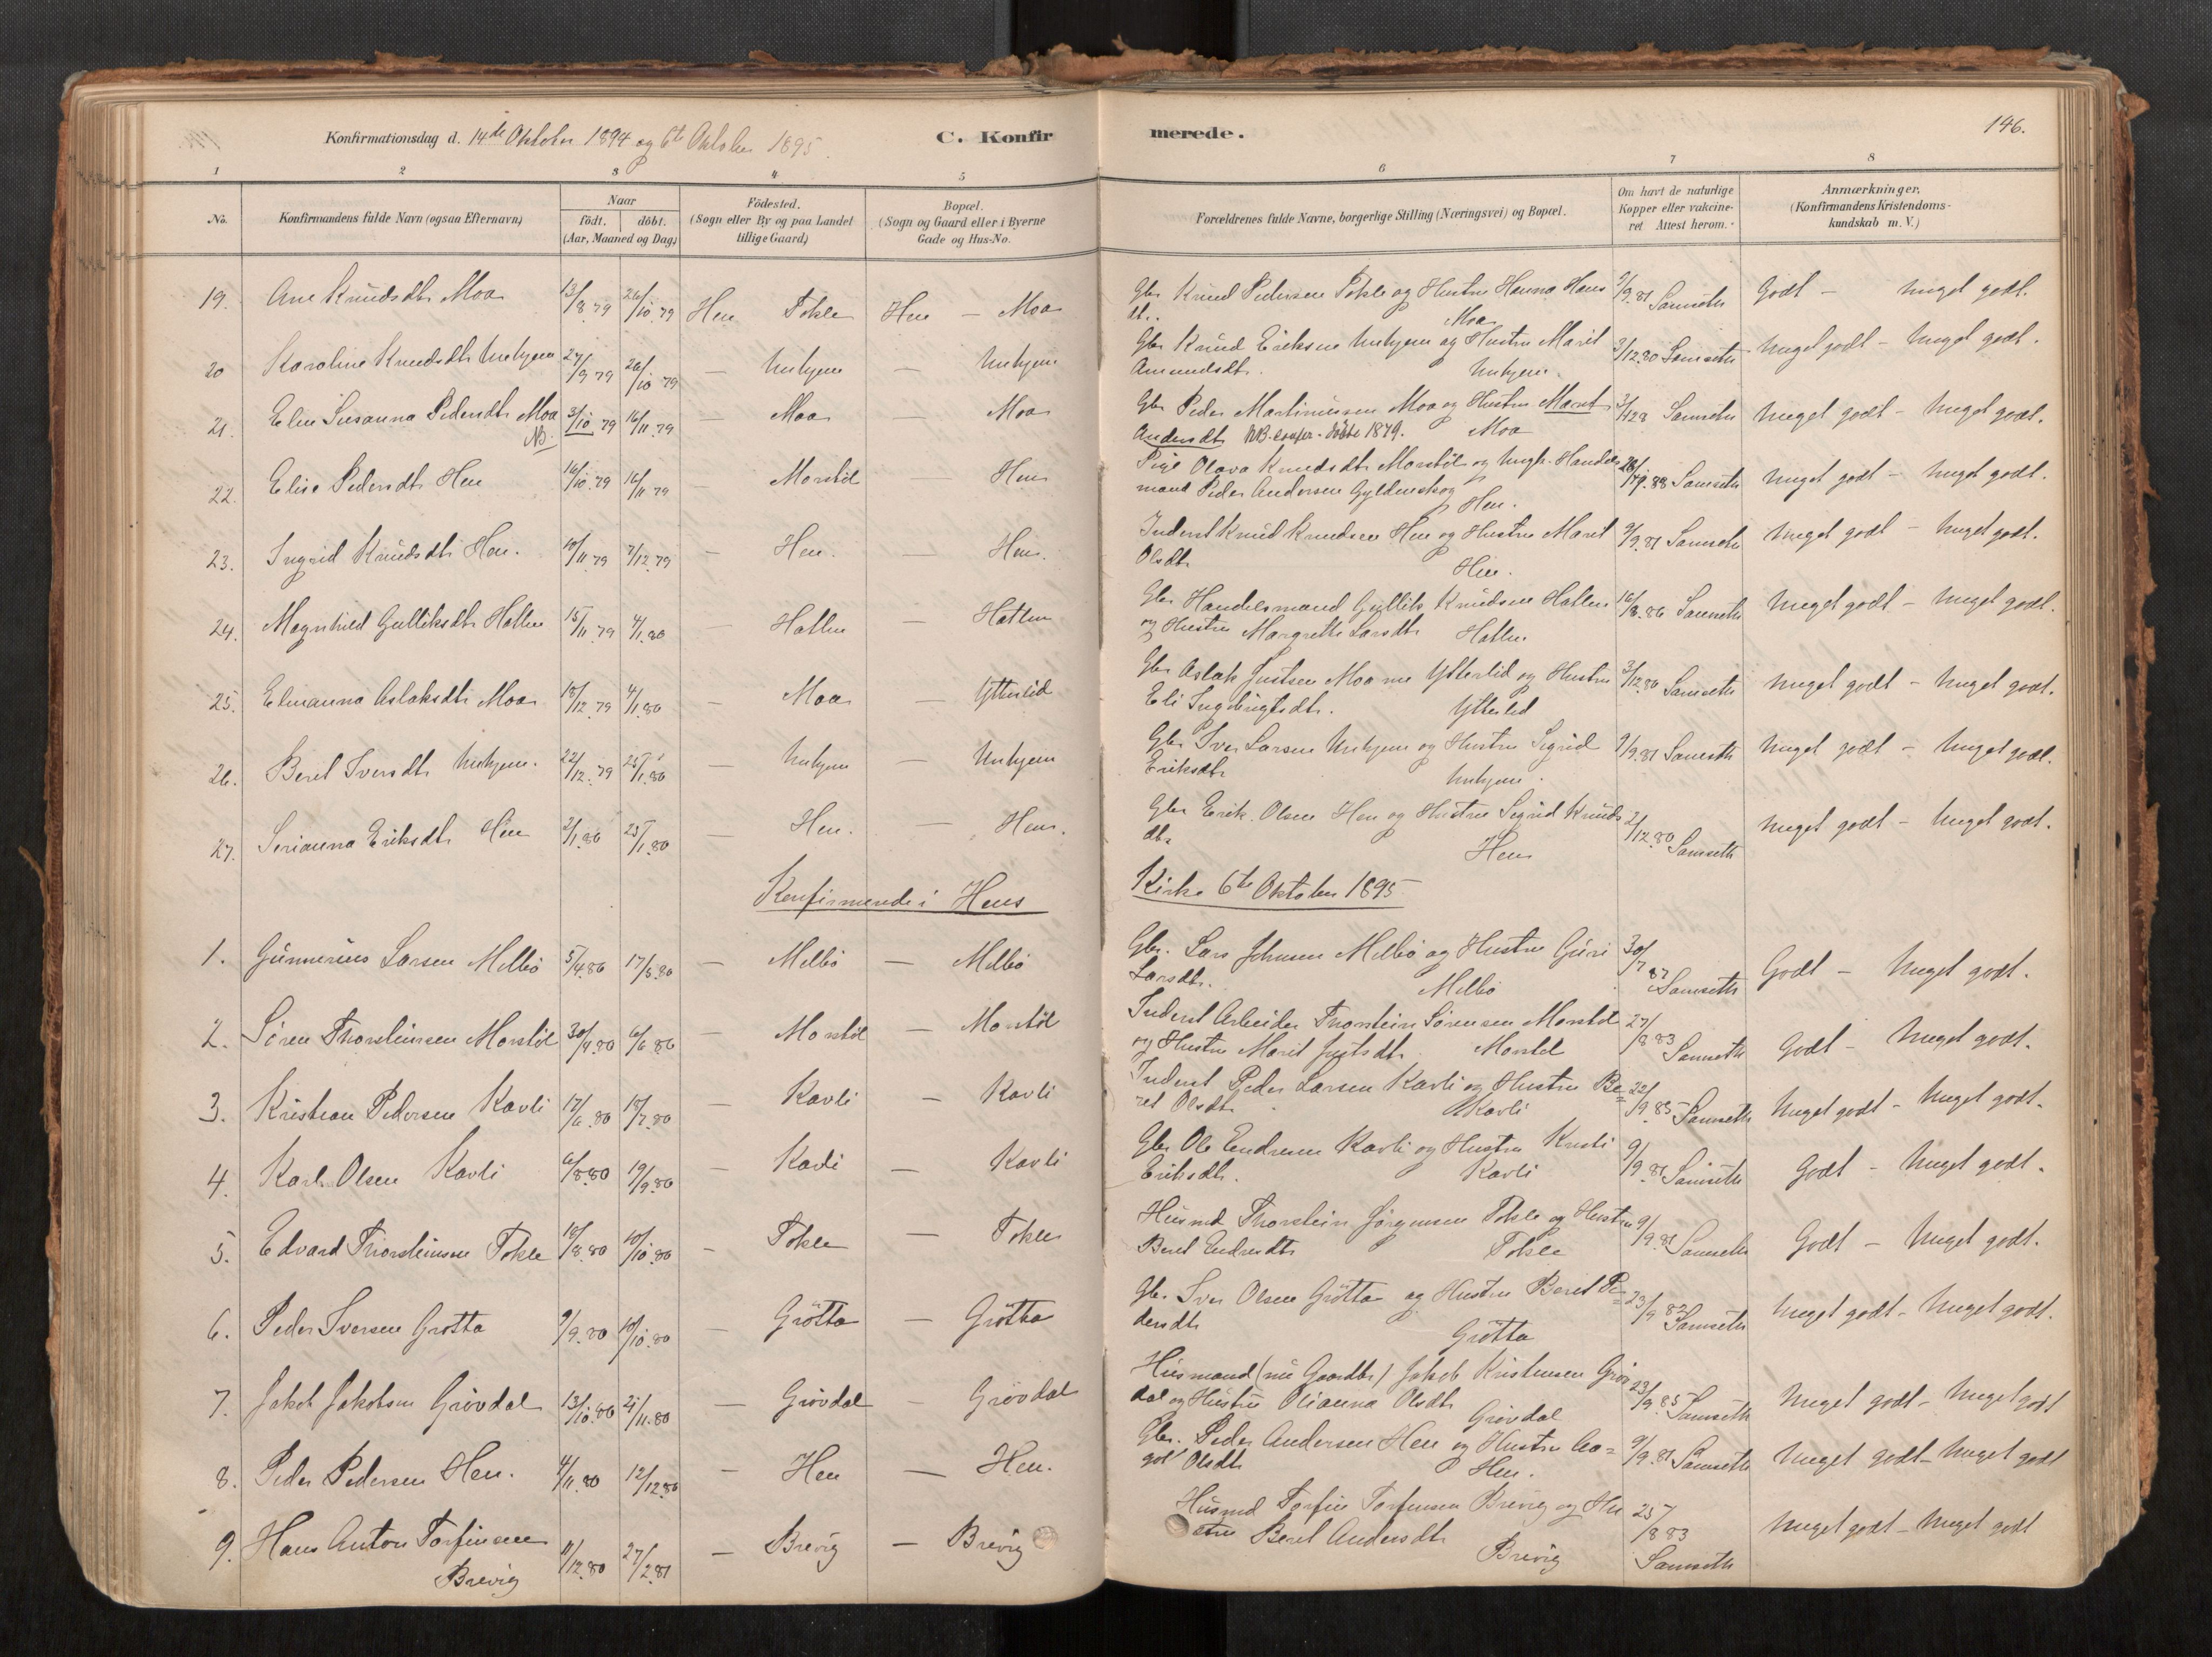 Konfirmationsdag d. 14de Oktober 1894 og 6te Oktober 1895.
C. Konfirmerede.
146.
1 2 3 4 5 6 7 8
No.
Konfirmandens fulde Navn (ogsaa Efternavn)
Naar
födt. döbt.
(Aar, Maaned og Dag)
Födested.
(Sogn eller By og paa Landet
tillige Gaard)
Bopæl.
(Sogn og Gaard eller i Byerne
Gade og Hus-No.
Forældrenes fulde Navne, borgerlige Stilling (Næringsvei) og Bopæl.
Om havt de naturlige
Kopper eller vakcine-
ret Attest herom.
Anmærkninger.
(Konfirmandens Kristendoms-
kundskab m. V.)
19. Ane Knudsdtr Moa 13/8 79 26/10 79 Hen Tokle Hen — Moa
Gbr Knud Pedersen Tokle og Hustru Hanna Hans 9/9.81 Samseth Godt — Meget godt.
dtr. Moa
20 Karoline Knudsdtr Unhjem 27/9 79 26/10 79 — Unhjem — Unhjem
Gbr Knud Eriksen Unhjem og Hustru Marit 3/12.80 Samseth Meget godt — Meget godt.
Amundsdtr. Unhjem.
21. Eline Susanna Pedersdtr Moa 3/10 79 16/11 79 — Moa — Moa
NB.
Gbr Peder Martinussen Moa og Hustru Marit Samseth Meget godt — Meget godt.
Andersdtr NB. confer. döbte 1879. Moa
22. Elise Pedersdtr Hen 16/10.79 16/11 79 — Morstöl — Hen
Pige Olava Knudsdtr Morstöl og Ungk. Handels 26/9.88 Samseth Meget godt — Meget godt.
mand Peder Andersen Gyldenskog Hen.
23. Ingrid Knudsdtr Hen. 10/11 79 7/12.79 — Hen. — Hen.
Inderst Knud Knudsen Hen og Hustru Marit 9/9.81 Samseth Meget godt — Meget godt.
Olsdtr Hen.
24. Magnhild Gulliksdtr Hatlen 15/11.79 4/1.80 — Hatlen — Hatlen
Gbr Handelsmand Gullik Knudsen Hatlen 16/8.86 Samseth Meget godt — Meget godt.
og Hustru Margrethe Larsdtr Hatlen
25. Elmanna Aslaksdtr Moa 18/12.79 4/1.80 — Moa — Ytterlid
Gbr Aslak Justsen Moa nu Ytterlid og Hustru 3/12.80 Samseth Meget godt — Meget godt.
Eli Ingebrigtsdtr. Ytterlid
26. Beret Iversdtr Unhjem. 22/12.79 25/1.80 — Unhjem — Unhjem
Gbr Iver Larsen Unhjem og Hustru Sigrid 9/9.81 Samseth Meget godt — Meget godt.
Eriksdtr Unhjem.
27. Serianna Eriksdtr Hen 2/1.80 25/1.80 — Hen. — Hen.
Gbr Erik Olsen Hen og Hustru Sigrid Knuds 2/12.80 Samseth Meget godt — Meget godt.
dtr Hen
Konfirmerede i Hens Kirke 6te Oktober 1895
1. Gunnerius Larsen Melbö 5/4.80 17/5.80 — Melbö — Melbö
Gbr. Lars Johnsen Melbö og Hustru Guri 30/7 87 Samseth Godt — Meget godt.
Larsdtr. Melbö
2. Sören Thorsteinsen Morstöl 30/4.80 6/6 80 — Morstöl — Morstöl
Inderst Arbeider Thorstein Sörensen Morstöl 27/8 83 Samseth Godt — Meget godt.
og Hustru Marit Justsdtr. Morstöl
3. Kristian Pedersen Kavli 17/6.80 18/7.80 — Kavli — Kavli
Inderst Peder Larsen Kavli og Hustru Be= 22/9 85 Samseth Meget godt — Meget godt.
ret Olsdtr Kavli
4. Karl Olsen Kavli 6/8.80 19/9.80 — Kavli — Kavli
Gbr Ole Endresen Kavli og Hustru Kristi 9/9.81 Samseth Godt — Meget godt.
Eriksdtr. Kavli
5. Edvard Thorsteinsen Tokle 18/8.80 10/10.80 — Tokle — Tokle
Husmd Thorstein Jörgensen Tokle og Hustru 9/9.81 Samseth Godt — Meget godt.
Beret Endresdtr Tokle
6. Peder Iversen Grötta 9/9.80 10/10.80 — Grötta — Grötta
Gbr. Iver Olsen Grötta og Hustru Beret Pe= 23/9 82 Samseth Meget godt — Meget godt.
dersdtr Grötta
7. Jakob Jakobsen Grövdal 13/10.80 21/11.80 — Grövdal — Grövdal
Husmand (nu Gaardbr) Jakob Kristensen Gröv 23/9.85 Samseth Meget godt — Meget godt
dal og Hustru Olianna Olsdtr Grövdal
8. Peder Pedersen Hen. 4/11.80 12/12.80 — Hen — Hen.
Gbr. Peder Andersen Hen og Hustru Aa= 9/9.81 Samseth Meget godt — Meget godt
got Olsdtr Hen.
9. Hans Anton Torfinsen 11/12.80 27/2.81 — Brevig — Brevig
Brevig
Husmd Torfin Torfinsen Brevig og Hu 25/8 83 Meget godt — Meget godt
stru Beret Andersdtr Brevig Samseth